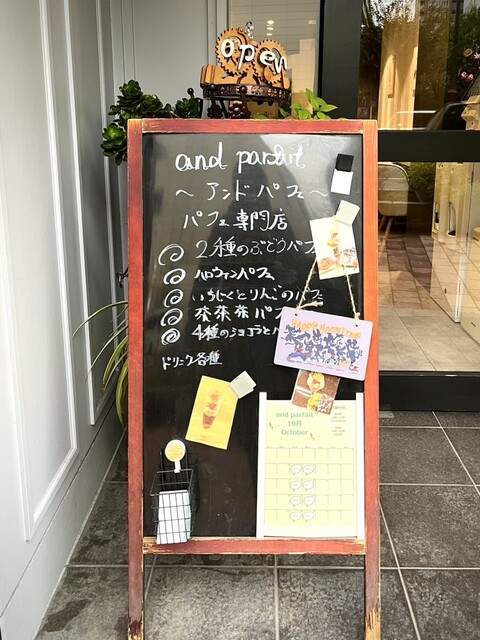 open
and parfait
～アンドパフェ～
パフェ専門店
2種のぶどうパフェ
ハロウィンパフェ
いちじくとりんごのパフェ
茶茶茶パフ
4種のショコラと
ドリンク各種
HAPPY HALLOWEEN
and parfait
10月
October